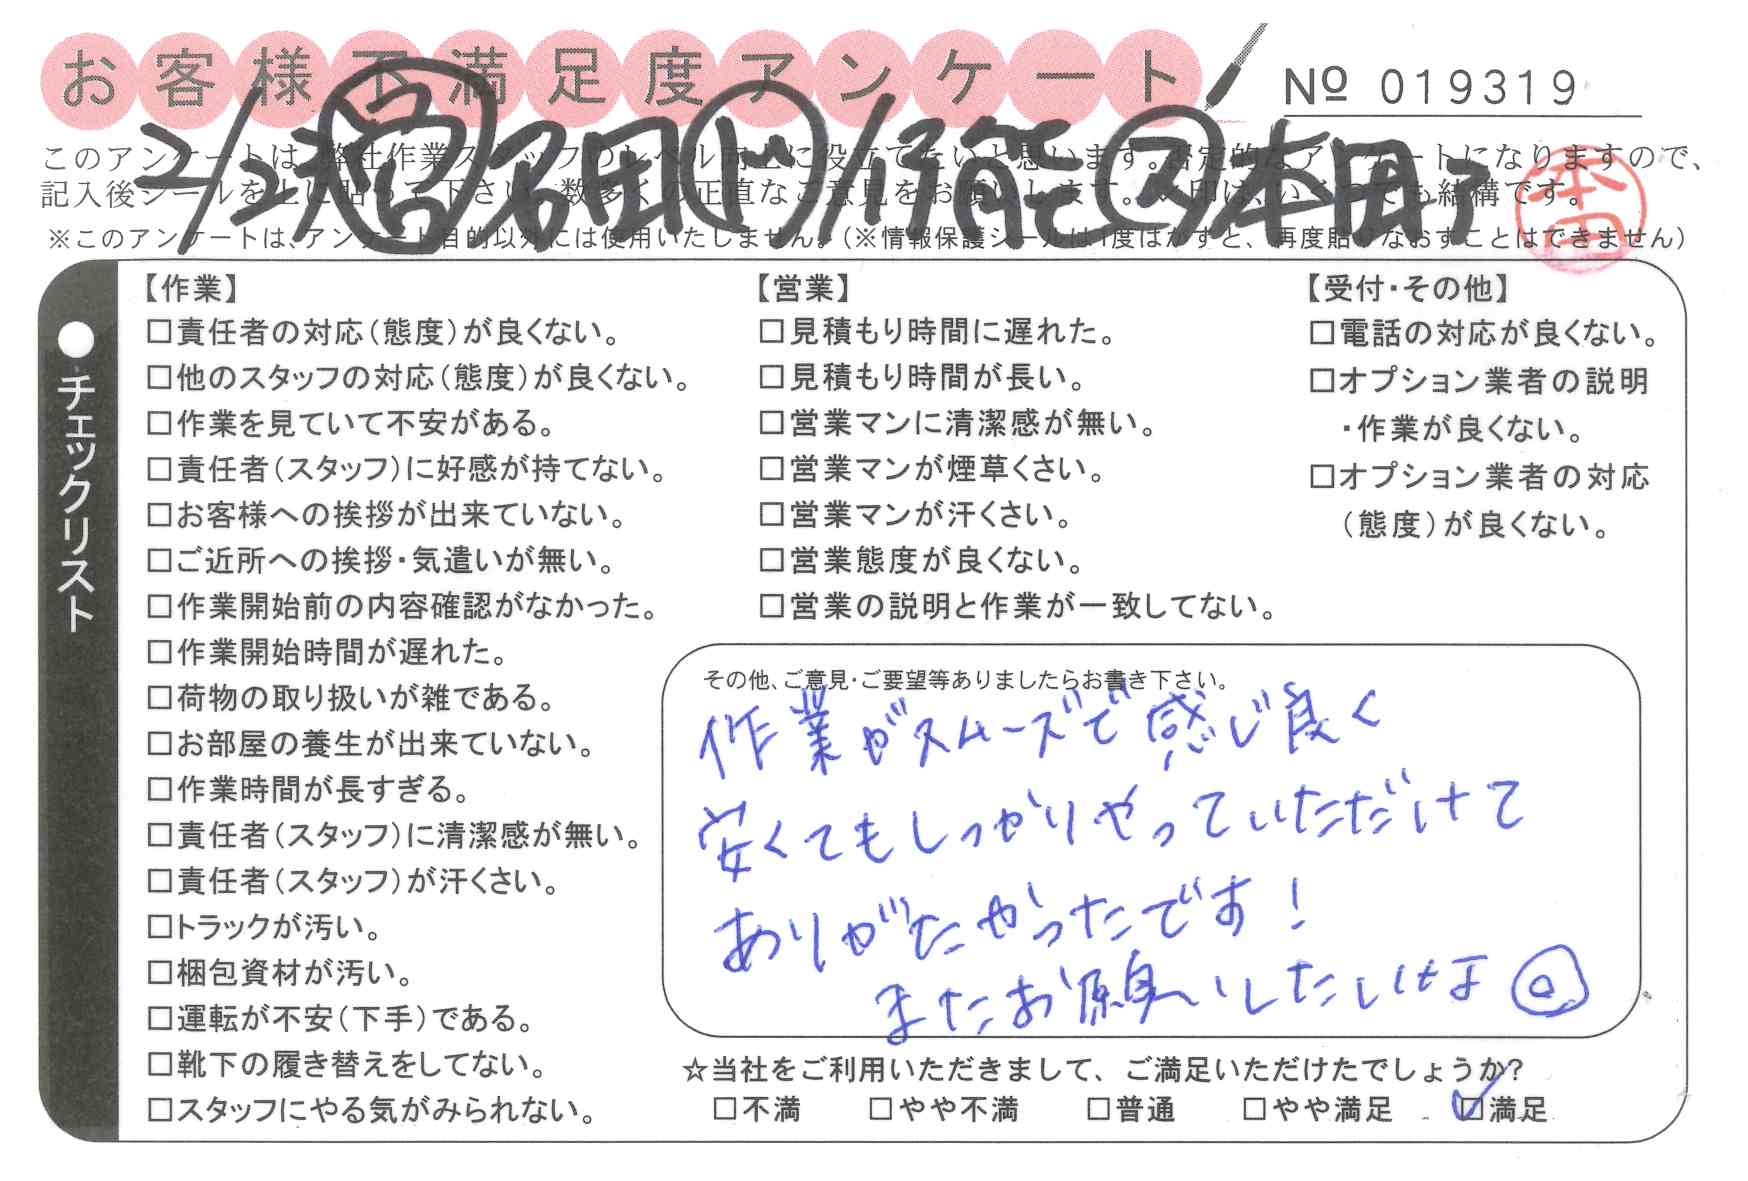 お客様不満足度アンケート
№ 019319
このアンケートは、弊社作業スタッフのレベル向上に役立てたいと思います。否定的なアンケートになりますので、
記入後シールを上に貼って下さい。数多くの正直なご意見をお願いします。✓印は、いくつでも結構です。
※このアンケートは、アンケート目的以外には使用いたしません。（※情報保護シールは1度はがすと、再度貼りなおすことはできません）
2/2 名田 本田
本田
●チェックリスト
【作業】
□責任者の対応（態度）が良くない。
□他のスタッフの対応（態度）が良くない。
□作業を見ていて不安がある。
□責任者（スタッフ）に好感が持てない。
□お客様への挨拶が出来ていない。
□ご近所への挨拶・気遣いが無い。
□作業開始前の内容確認がなかった。
□作業開始時間が遅れた。
□荷物の取り扱いが雑である。
□お部屋の養生が出来ていない。
□作業時間が長すぎる。
□責任者（スタッフ）に清潔感が無い。
□責任者（スタッフ）が汗くさい。
□トラックが汚い。
□梱包資材が汚い。
□運転が不安（下手）である。
□靴下の履き替えをしてない。
□スタッフにやる気がみられない。
【営業】
□見積もり時間に遅れた。
□見積もり時間が長い。
□営業マンに清潔感が無い。
□営業マンが煙草くさい。
□営業マンが汗くさい。
□営業態度が良くない。
□営業の説明と作業が一致してない。
【受付・その他】
□電話の対応が良くない。
□オプション業者の説明
・作業が良くない。
□オプション業者の対応
（態度）が良くない。
その他、ご意見・ご要望等ありましたらお書き下さい。
作業がスムーズで感じ良く
安くてもしっかりやっていただけて
ありがたかったです！
またお願いしたいです
☆当社をご利用いただきまして、ご満足いただけたでしょうか？
□不満 □やや不満 □普通 □やや満足 ☑満足